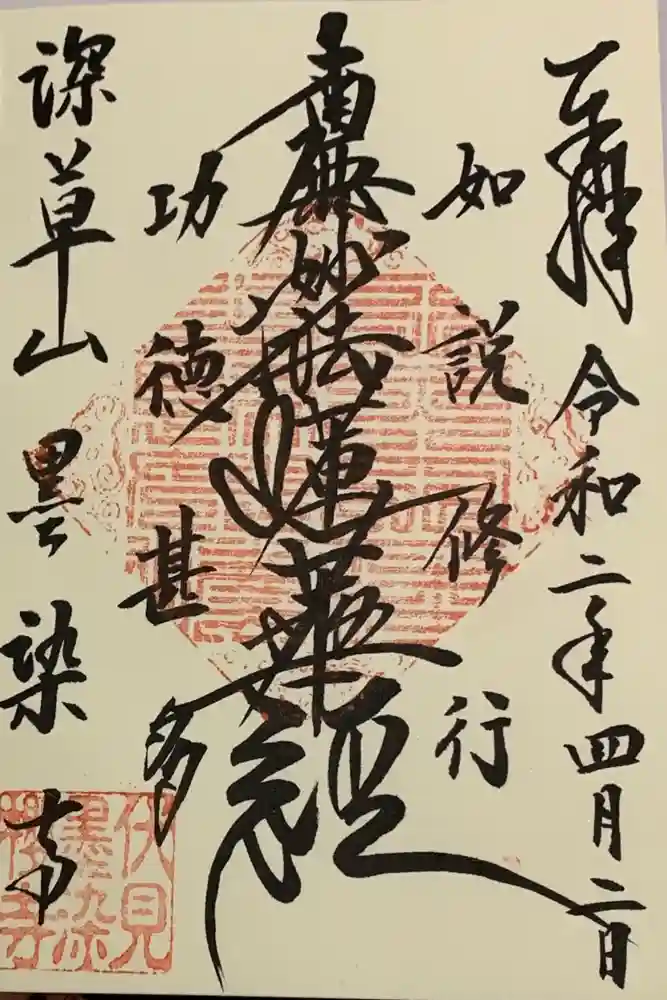 奉拝 令和二年四月二日
如説修行
南無妙法蓮華経
功徳甚多
深草山 墨染寺
伏見
墨染
桜寺